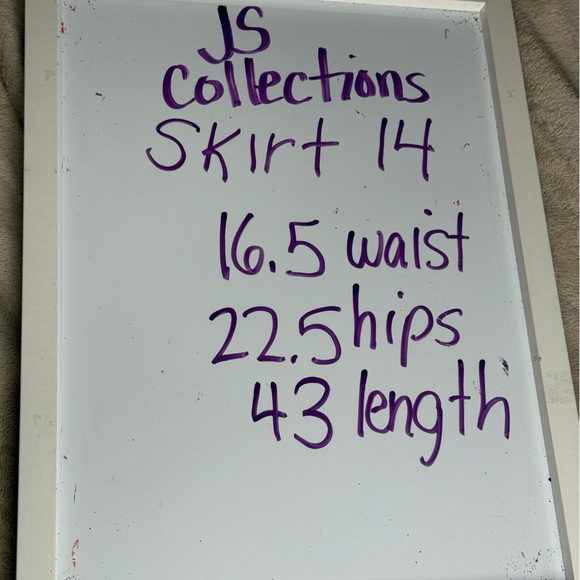 JS
Collections
Skirt 14
16.5 waist
22.5 hips
43 length